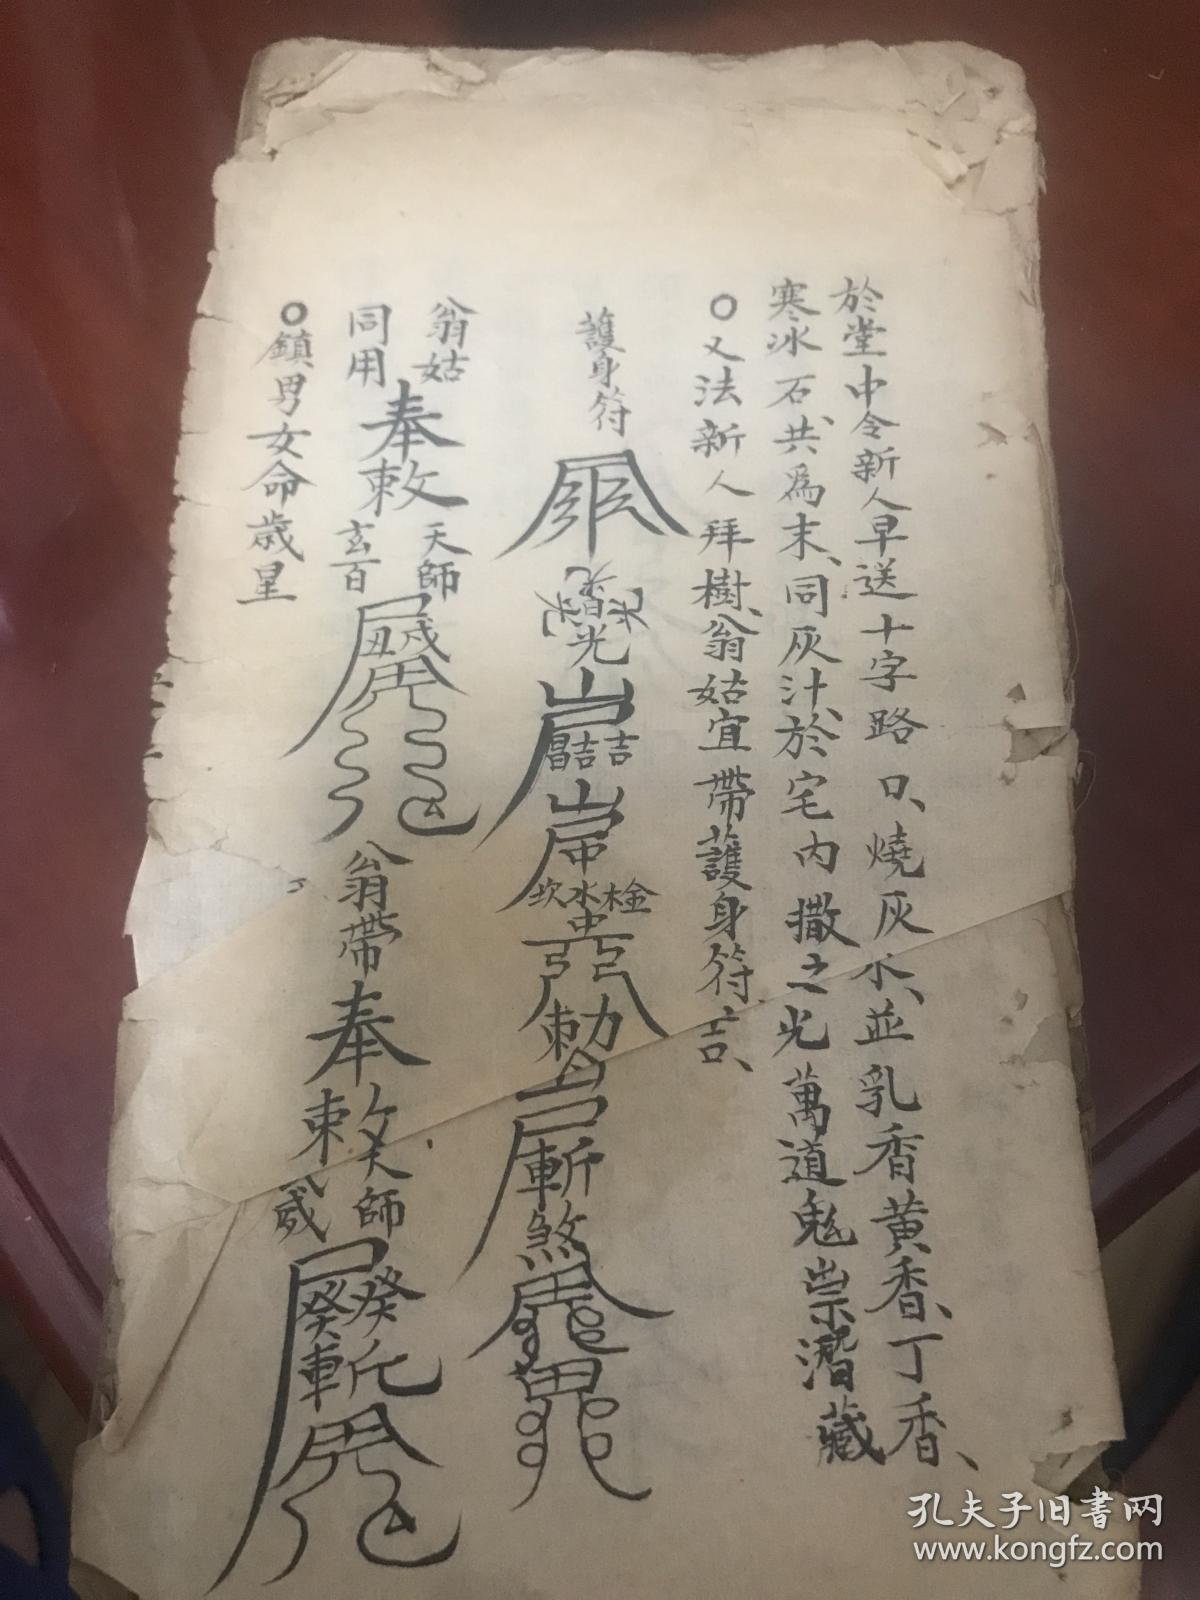 於堂中令新人早送十字路口、燒灰水、並乳香黃香、丁香、
寒冰石、共為末、同灰汁、於宅内撒之光萬道鬼祟潛藏
○又法新人拜樹、翁姑宜帶護身符、吉、
護身符
光
勅
斬煞
翁姑
同用
奉敕
天師
玄百
翁帶
奉敕
天師
○鎮男女命歲星
孔夫子旧書网
www.kongfz.com